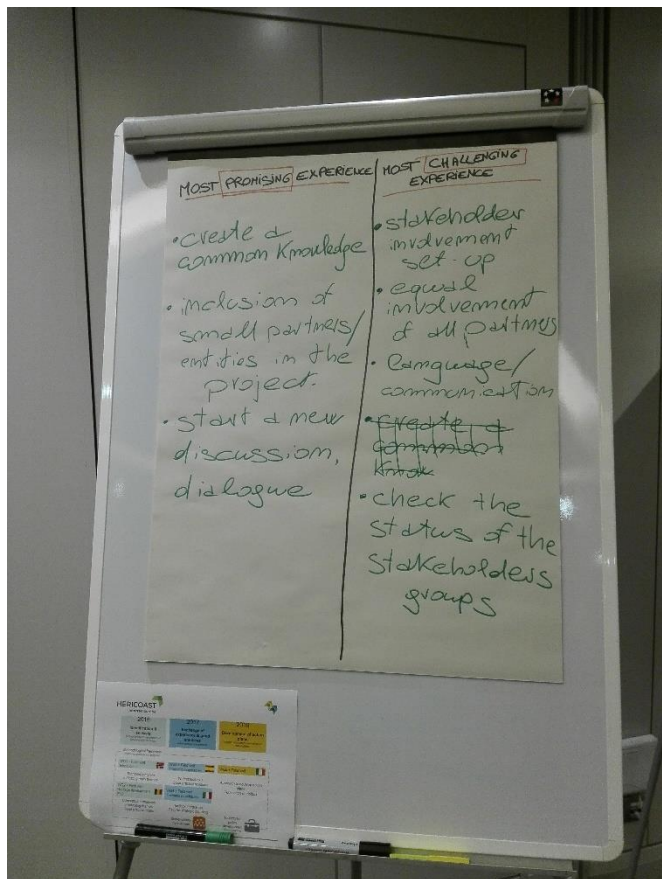 MOST PROMISING EXPERIENCE
• create a
common knowledge
• inclusion of
small partners/
entities in the
project.
• start a new
discussion,
dialogue
MOST CHALLENGING
EXPERIENCE
• stakeholder
involvement
set-up
• equal
involvement
of all partners
• language/
communication
• create a
common
know
• check the
status of the
stakeholders
groups
HERICOAST
2016
2017
2018